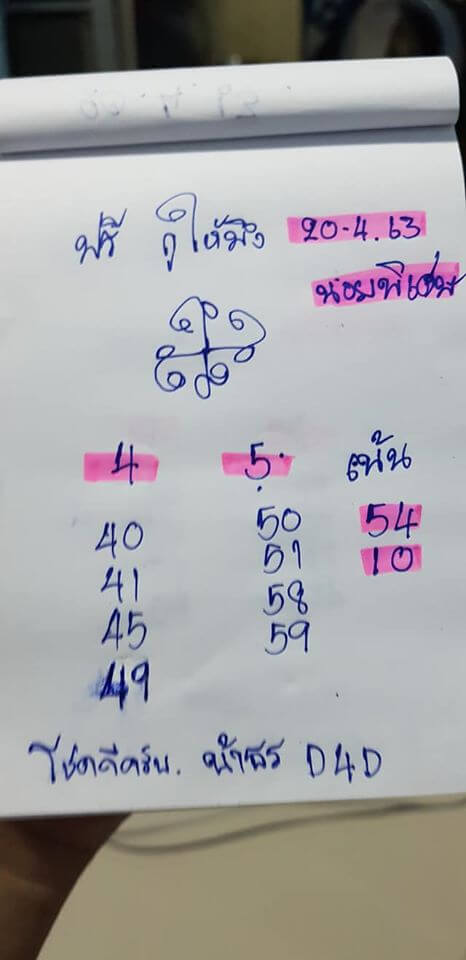 ฟรี กูให้มึง 20-4.63
นอยพิเศษ
4 5 เน้น
40 50 54
41 51 10
45 58
49 59
โชคดีครับ. น้าธร D4D